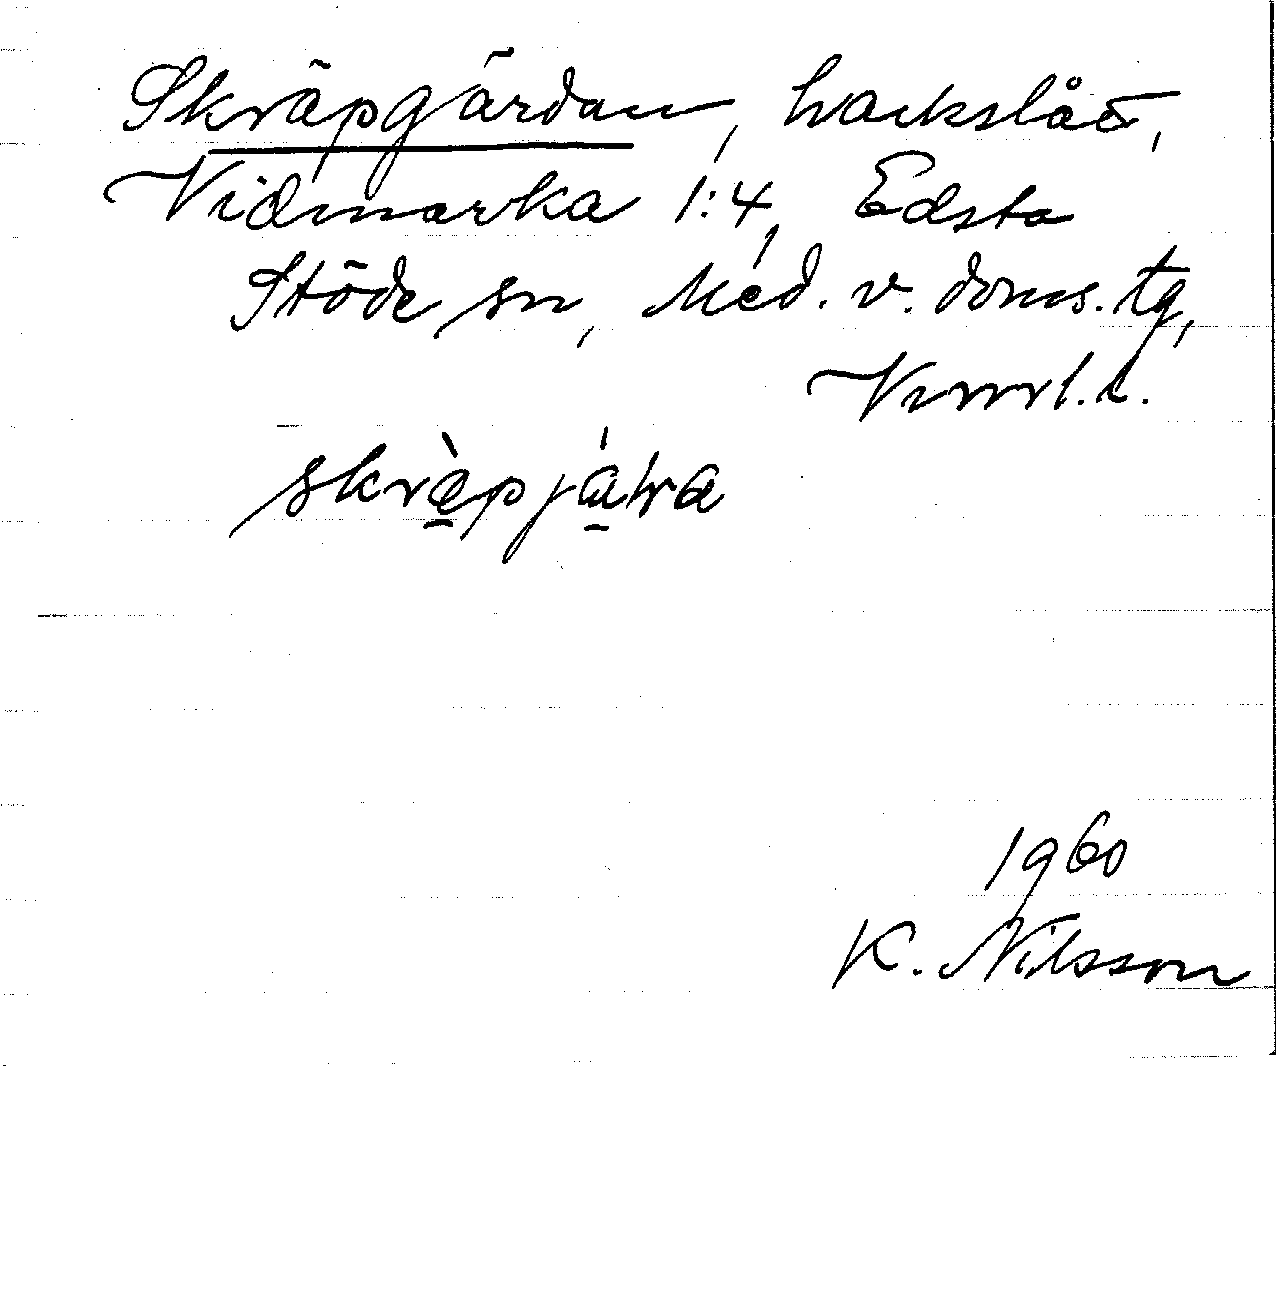 Skräpgärdan, hackslått,
Vidmarka 1:4, Edsta
Stöde sn, Med. v. doms. tg,
Vnrrl. l.
skràpjáɽa
1960
K. Nilsson